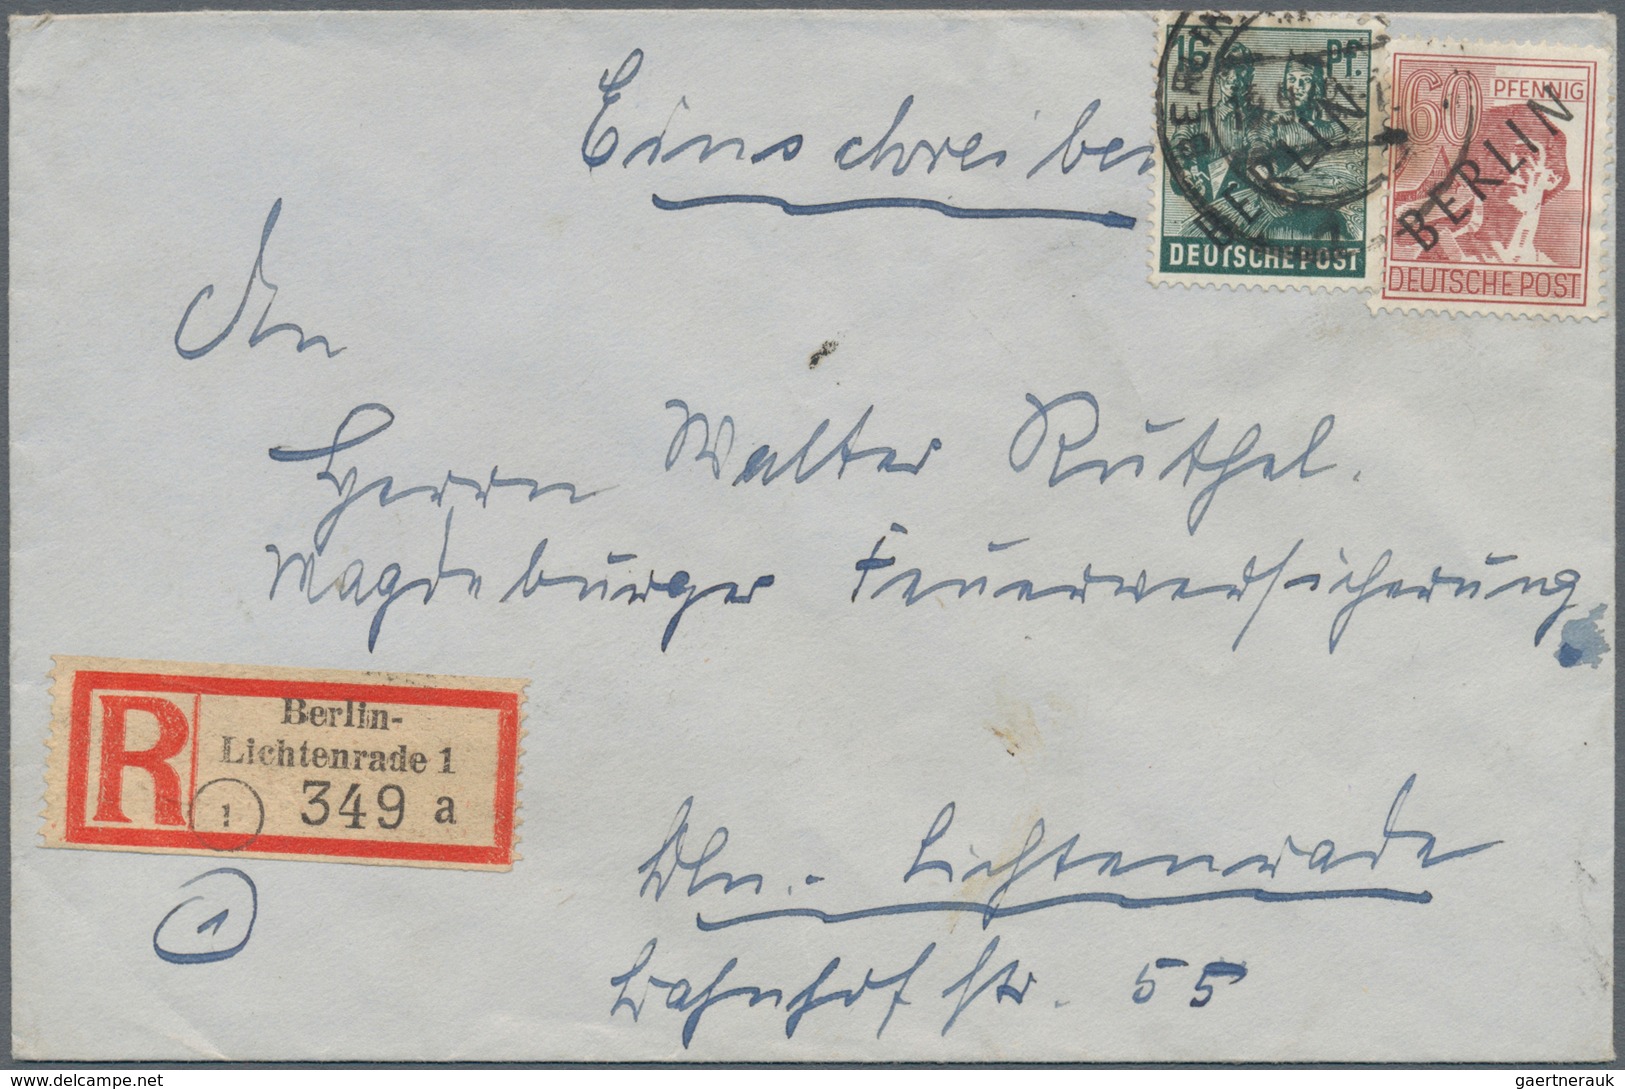 Einschreiben
16 Pf.
BERLIN
DEUTSCHE POST
60 PFENNIG
BERLIN
DEUTSCHE POST
An
Herrn Walter Rüthel.
Magdeburger Feuerversicherung
R
Berlin-
Lichtenrade 1
1 349 a
1
Bln.- Lichtenrade
Bahnhofstr. 55
www.delcampe.net
gaertnerauk